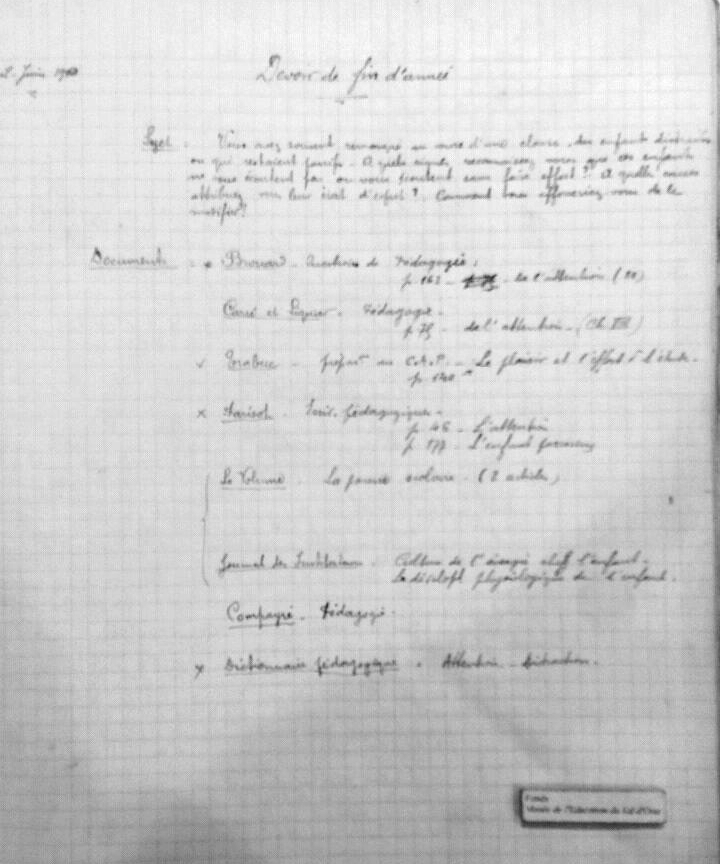 Juin
Devoir de fin d'année
Sujet : Vous avez souvent remarqué au cours d'une classe, des enfants distraits
ou qui restaient passifs. A quels signes reconnaissez vous que ces enfants
ne vous écoutent pas ou vous écoutent sans faire effort ? A quelles causes
attribuez vous leur état d'esprit ? Comment vous efforceriez vous de le
modifier ?
Documents : Pédagogie :
p 163 - de l'attention
Carré et Liquier - Pédagogie -
p. 75 - de l'attention - (Ch VIII)
x C.A.P. - Le plaisir et l'effort à l'étude.
x pédagogiques -
p 46 - L'attention
p 177 - L'enfant paresseux
Le Volume - La scolaire - (2 articles)
Journal des Instituteurs - Culture de l'énergie chez l'enfant -
Le dévelopt physiologique de l'enfant.
Compayré - Pédagogie -
x Dictionnaire pédagogique - Attention - Distraction.
Fonds
Musée de l'Education du Val d'Oise